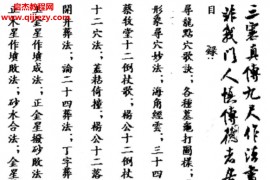 三寮真傳九尺作法書
非我門人慎傳德者居
目錄
尋龍點穴歌訣、各種墓龜打圖樣、
形象尋穴妙法、海角經雲、三十四
蔡牧堂十二倒杖歌、楊公十二倒
十二穴法、蓋粘倚撞、楊公十二落
開井葬法、論二十四葬法、丁字葬
正金星作墳成法、正金星撥砂敗法
正木星作墳敗法、砂水合法、金星